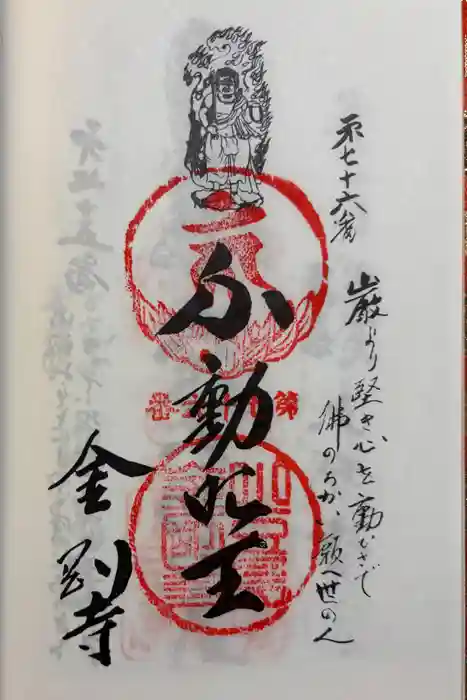 第七十六番
巌より堅き心を動かさで
佛のちかい願へ世の人
不動明王
金剛寺